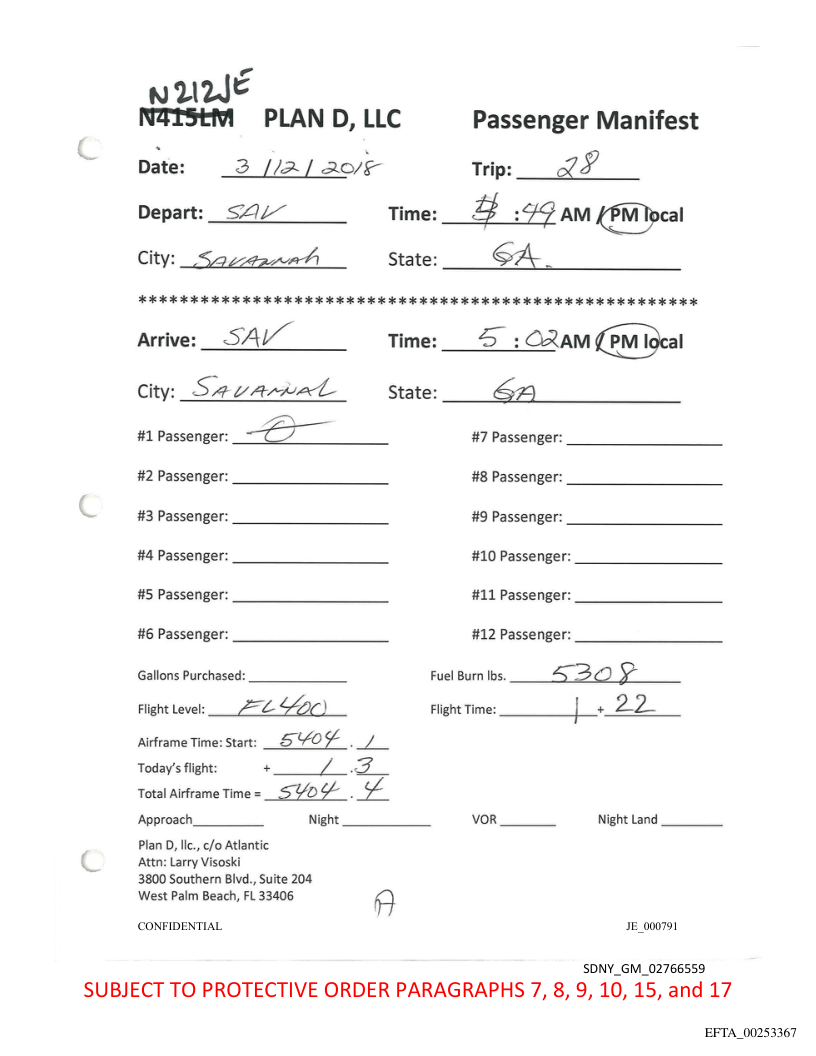 N212JE
N415LM PLAN D, LLC Passenger Manifest
Date: 3/12/2018 Trip: 28
Depart: SAV Time: :49 AM / PM local
City: SAVANNAH State: GA.
*******************************************************
Arrive: SAV Time: 5:02 AM / PM local
City: SAVANNAH State: GA
#1 Passenger: 0 #7 Passenger:
#2 Passenger: #8 Passenger:
#3 Passenger: #9 Passenger:
#4 Passenger: #10 Passenger:
#5 Passenger: #11 Passenger:
#6 Passenger: #12 Passenger:
Gallons Purchased: Fuel Burn lbs. 5308
Flight Level: FL400 Flight Time: 1 + 22
Airframe Time: Start: 5404.1
Today's flight: + 1.3
Total Airframe Time = 5404.4
Approach Night VOR Night Land
Plan D, llc., c/o Atlantic
Attn: Larry Visoski
3800 Southern Blvd., Suite 204
West Palm Beach, FL 33406
A
CONFIDENTIAL JE_000791
SDNY_GM_02766559
SUBJECT TO PROTECTIVE ORDER PARAGRAPHS 7, 8, 9, 10, 15, and 17
EFTA_00253367